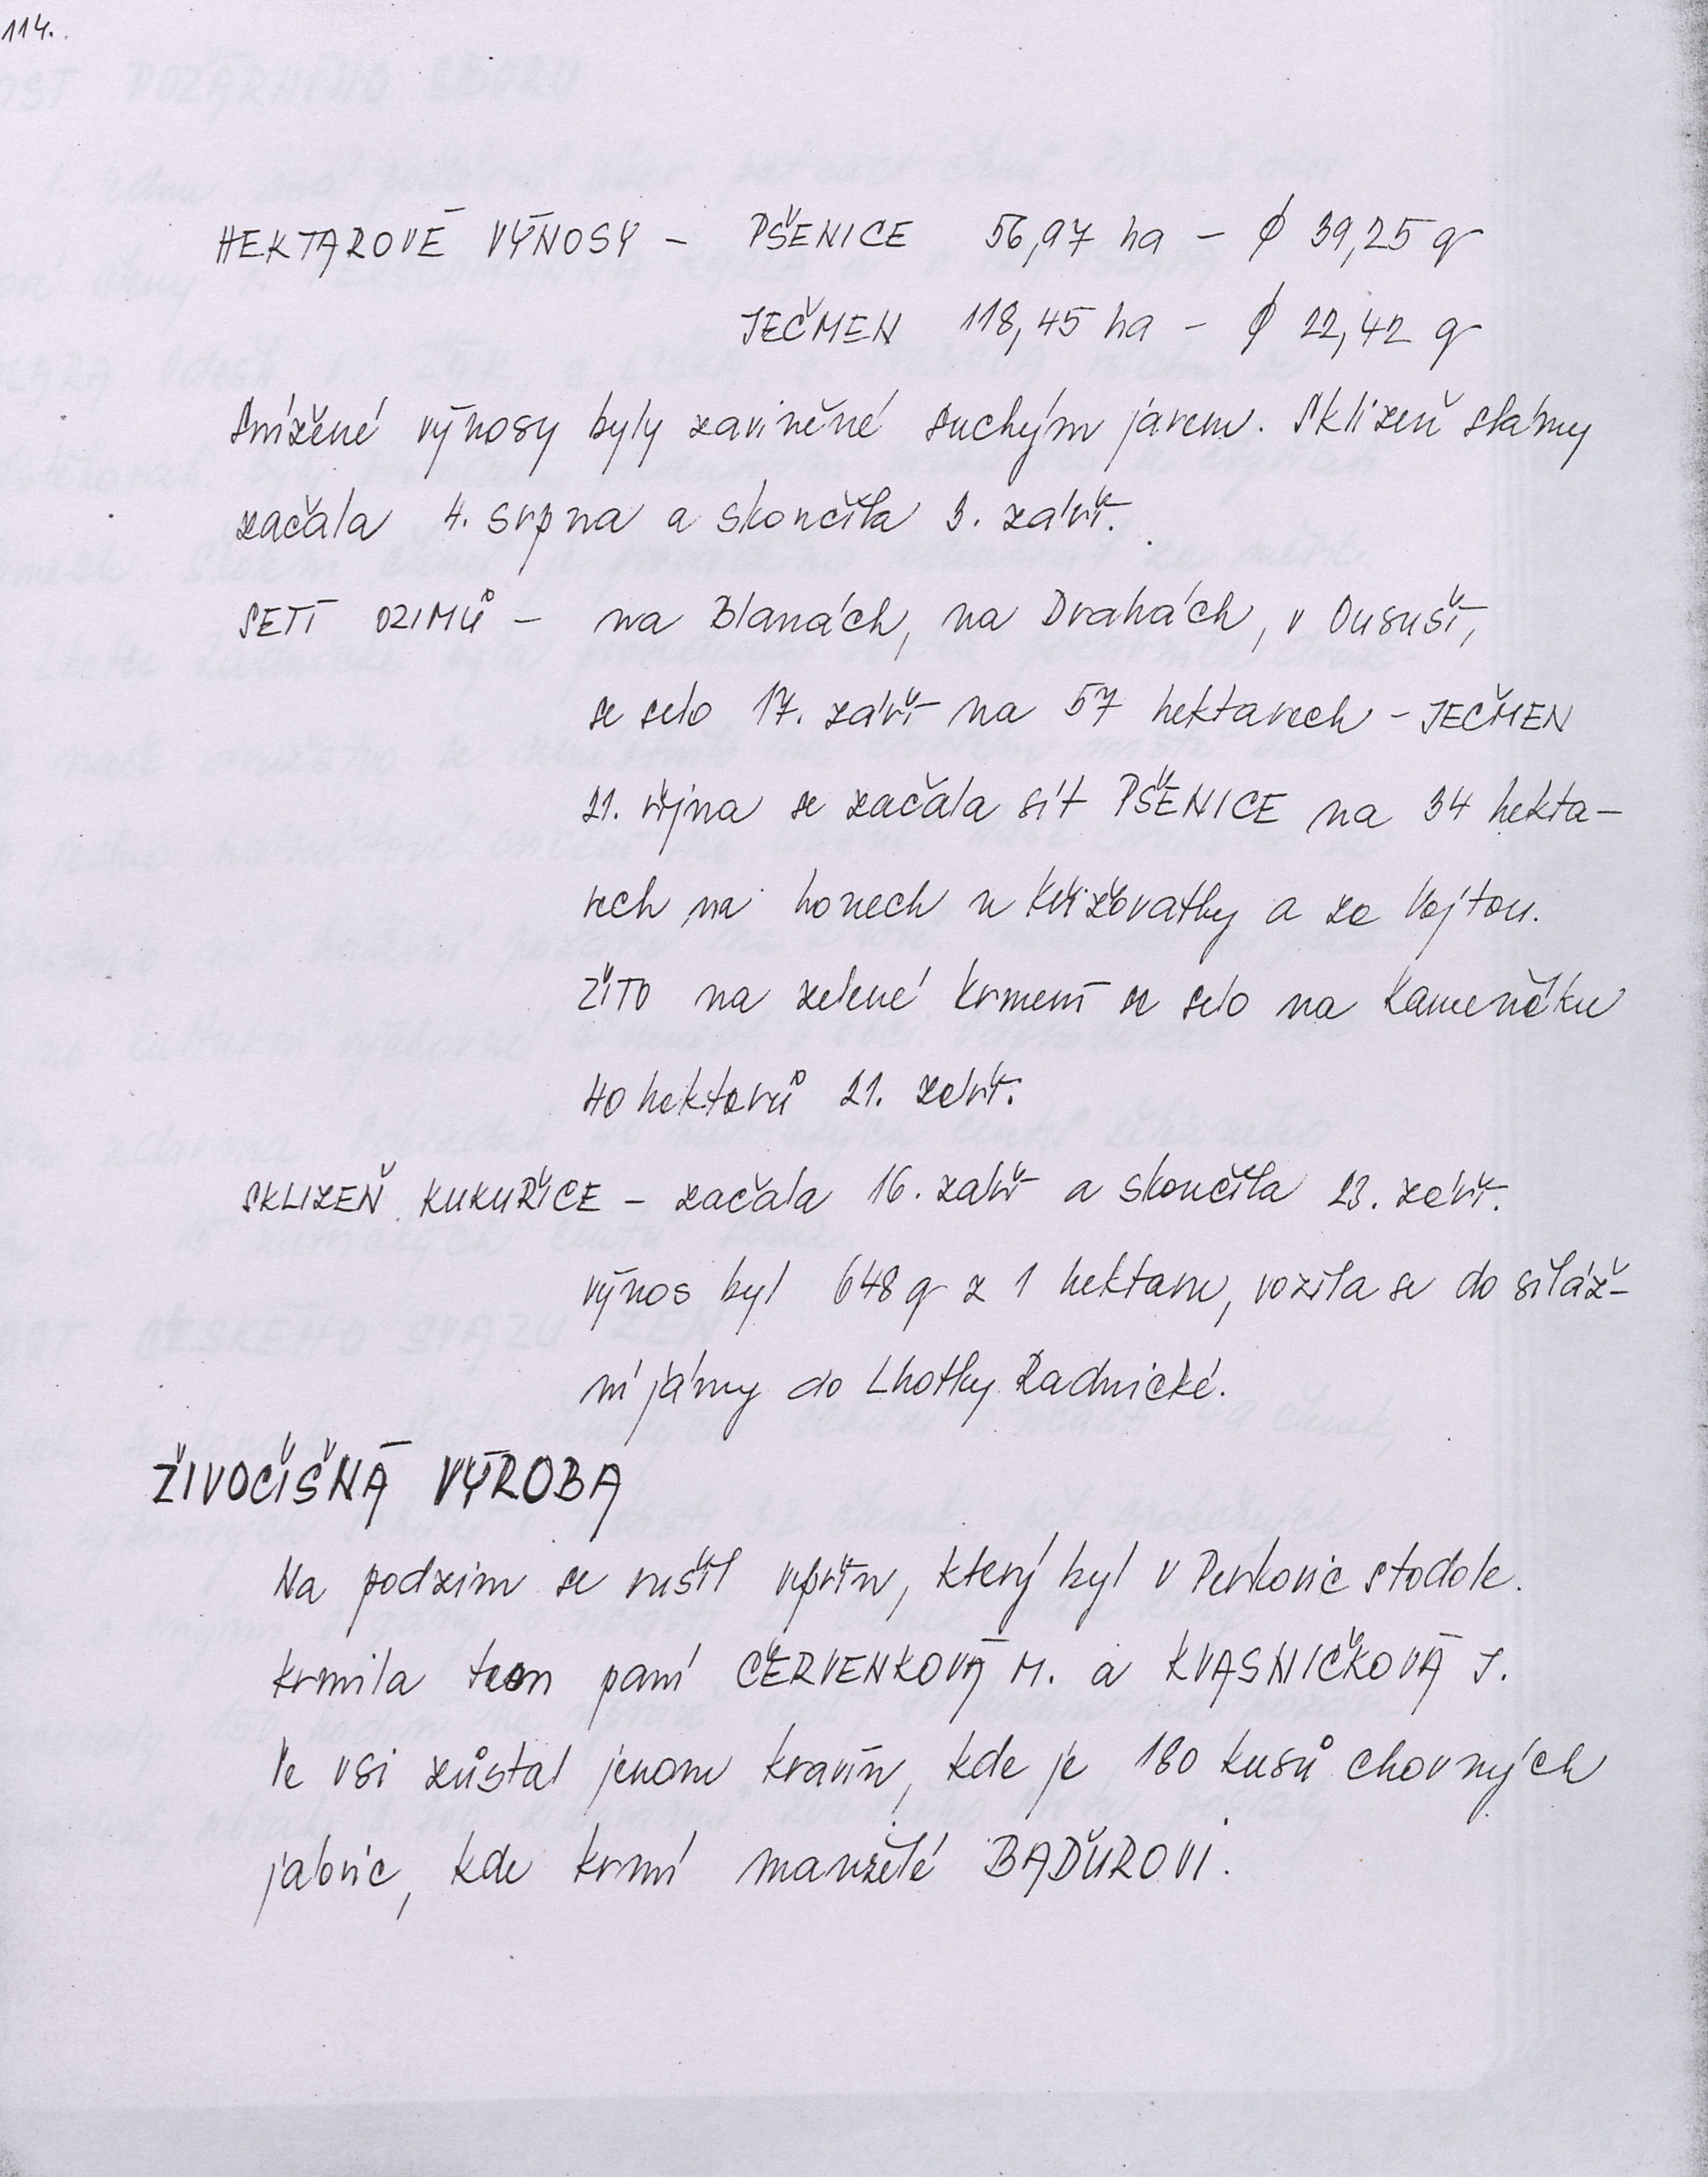 114.
HEKTAROVÉ VÝNOSY – PŠENICE 56,97 ha – ϕ 39,25 q
JEČMEN 118,45 ha – ϕ 22,42 q
Snížené výnosy byly zaviněné suchým jarem. Sklizeň slámy
začala 4. srpna a skončila 3. září.
SETÍ OZIMŮ – na Blanách, na Drahách, v Oususí,
se selo 17. září na 57 hektarech – JEČMEN
21. října se začala sít PŠENICE na 34 hekta–
rech na honech u Křižovatky a za Vojtou.
ŽITO na zelené krmení se selo na Kameňáku
40 hektarů 21. září.
SKLIZEŇ KUKUŘICE – začala 16. září a skončila 23. září.
výnos byl 648 q z 1 hektaru, vozila se do siláž–
ní jámy do Lhotky Radnické.
ŽIVOČIŠNÁ VÝROBA
Na podzim se rušil vepřín, který byl v Perkovic stodole.
Krmila tam paní ČERVENKOVÁ M. a KVASNIČKOVÁ J.
Ve vsi zůstal jenom kravín, kde je 180 kusů chovných
jalovic, kde krmí manželé BAĎUROVI.